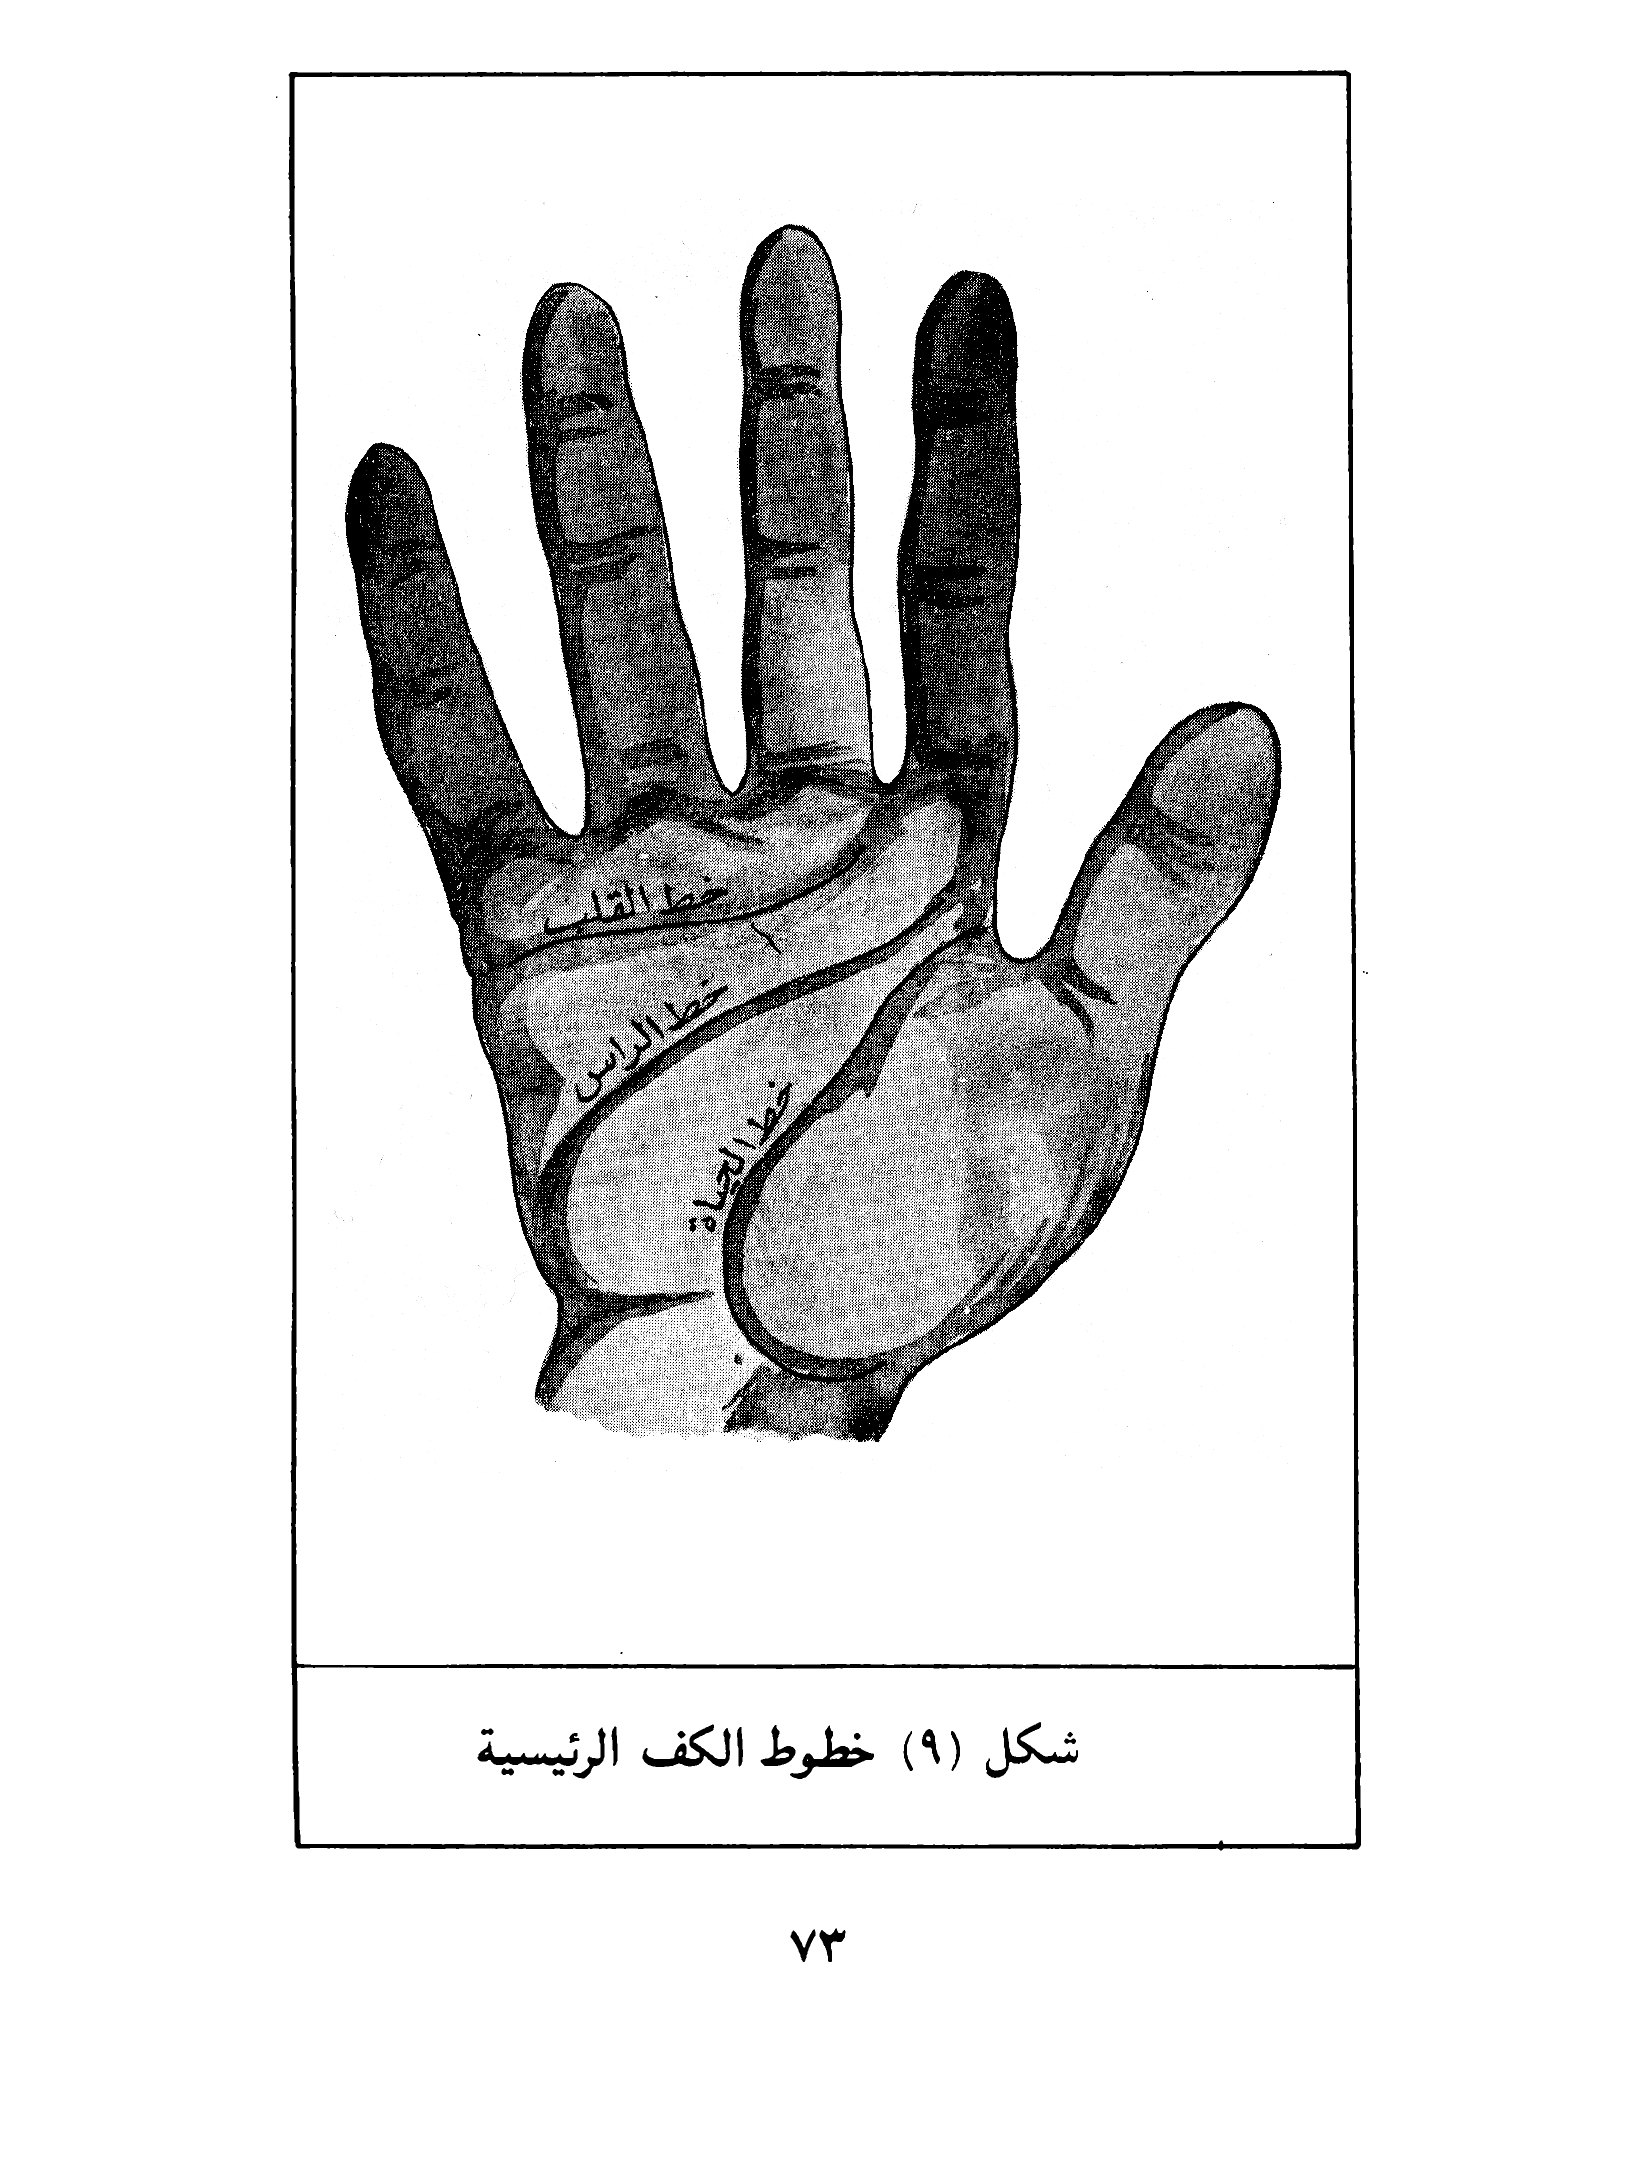 خط القلب
خط الراس
خط الحياة
شكل (٩) خطوط الكف الرئيسية
٧٣